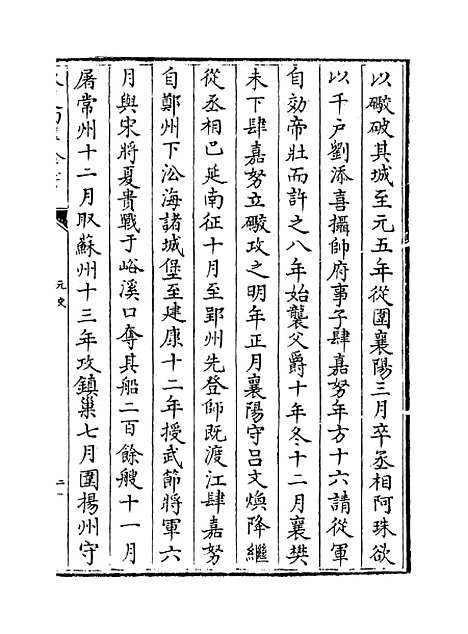 以礮破其城至元五年從圍襄陽三月卒丞相阿珠欲
以千户劉添喜攝帥府事子肆嘉努年方十六請從軍
自効帝壯而許之八年始襲父爵十年冬十二月襄樊
未下肆嘉努立礮攻之明年正月襄陽守吕文煥降繼
從丞相巴延南征十月至郢州先登師既渡江肆嘉努
自鄭州下沿海諸城堡至建康十二年授武節將軍六
月與宋將夏貴戰于峪溪口奪其船二百餘艘十一月
屠常州十二月取蘇州十三年攻鎮巢七月圍揚州守
元史